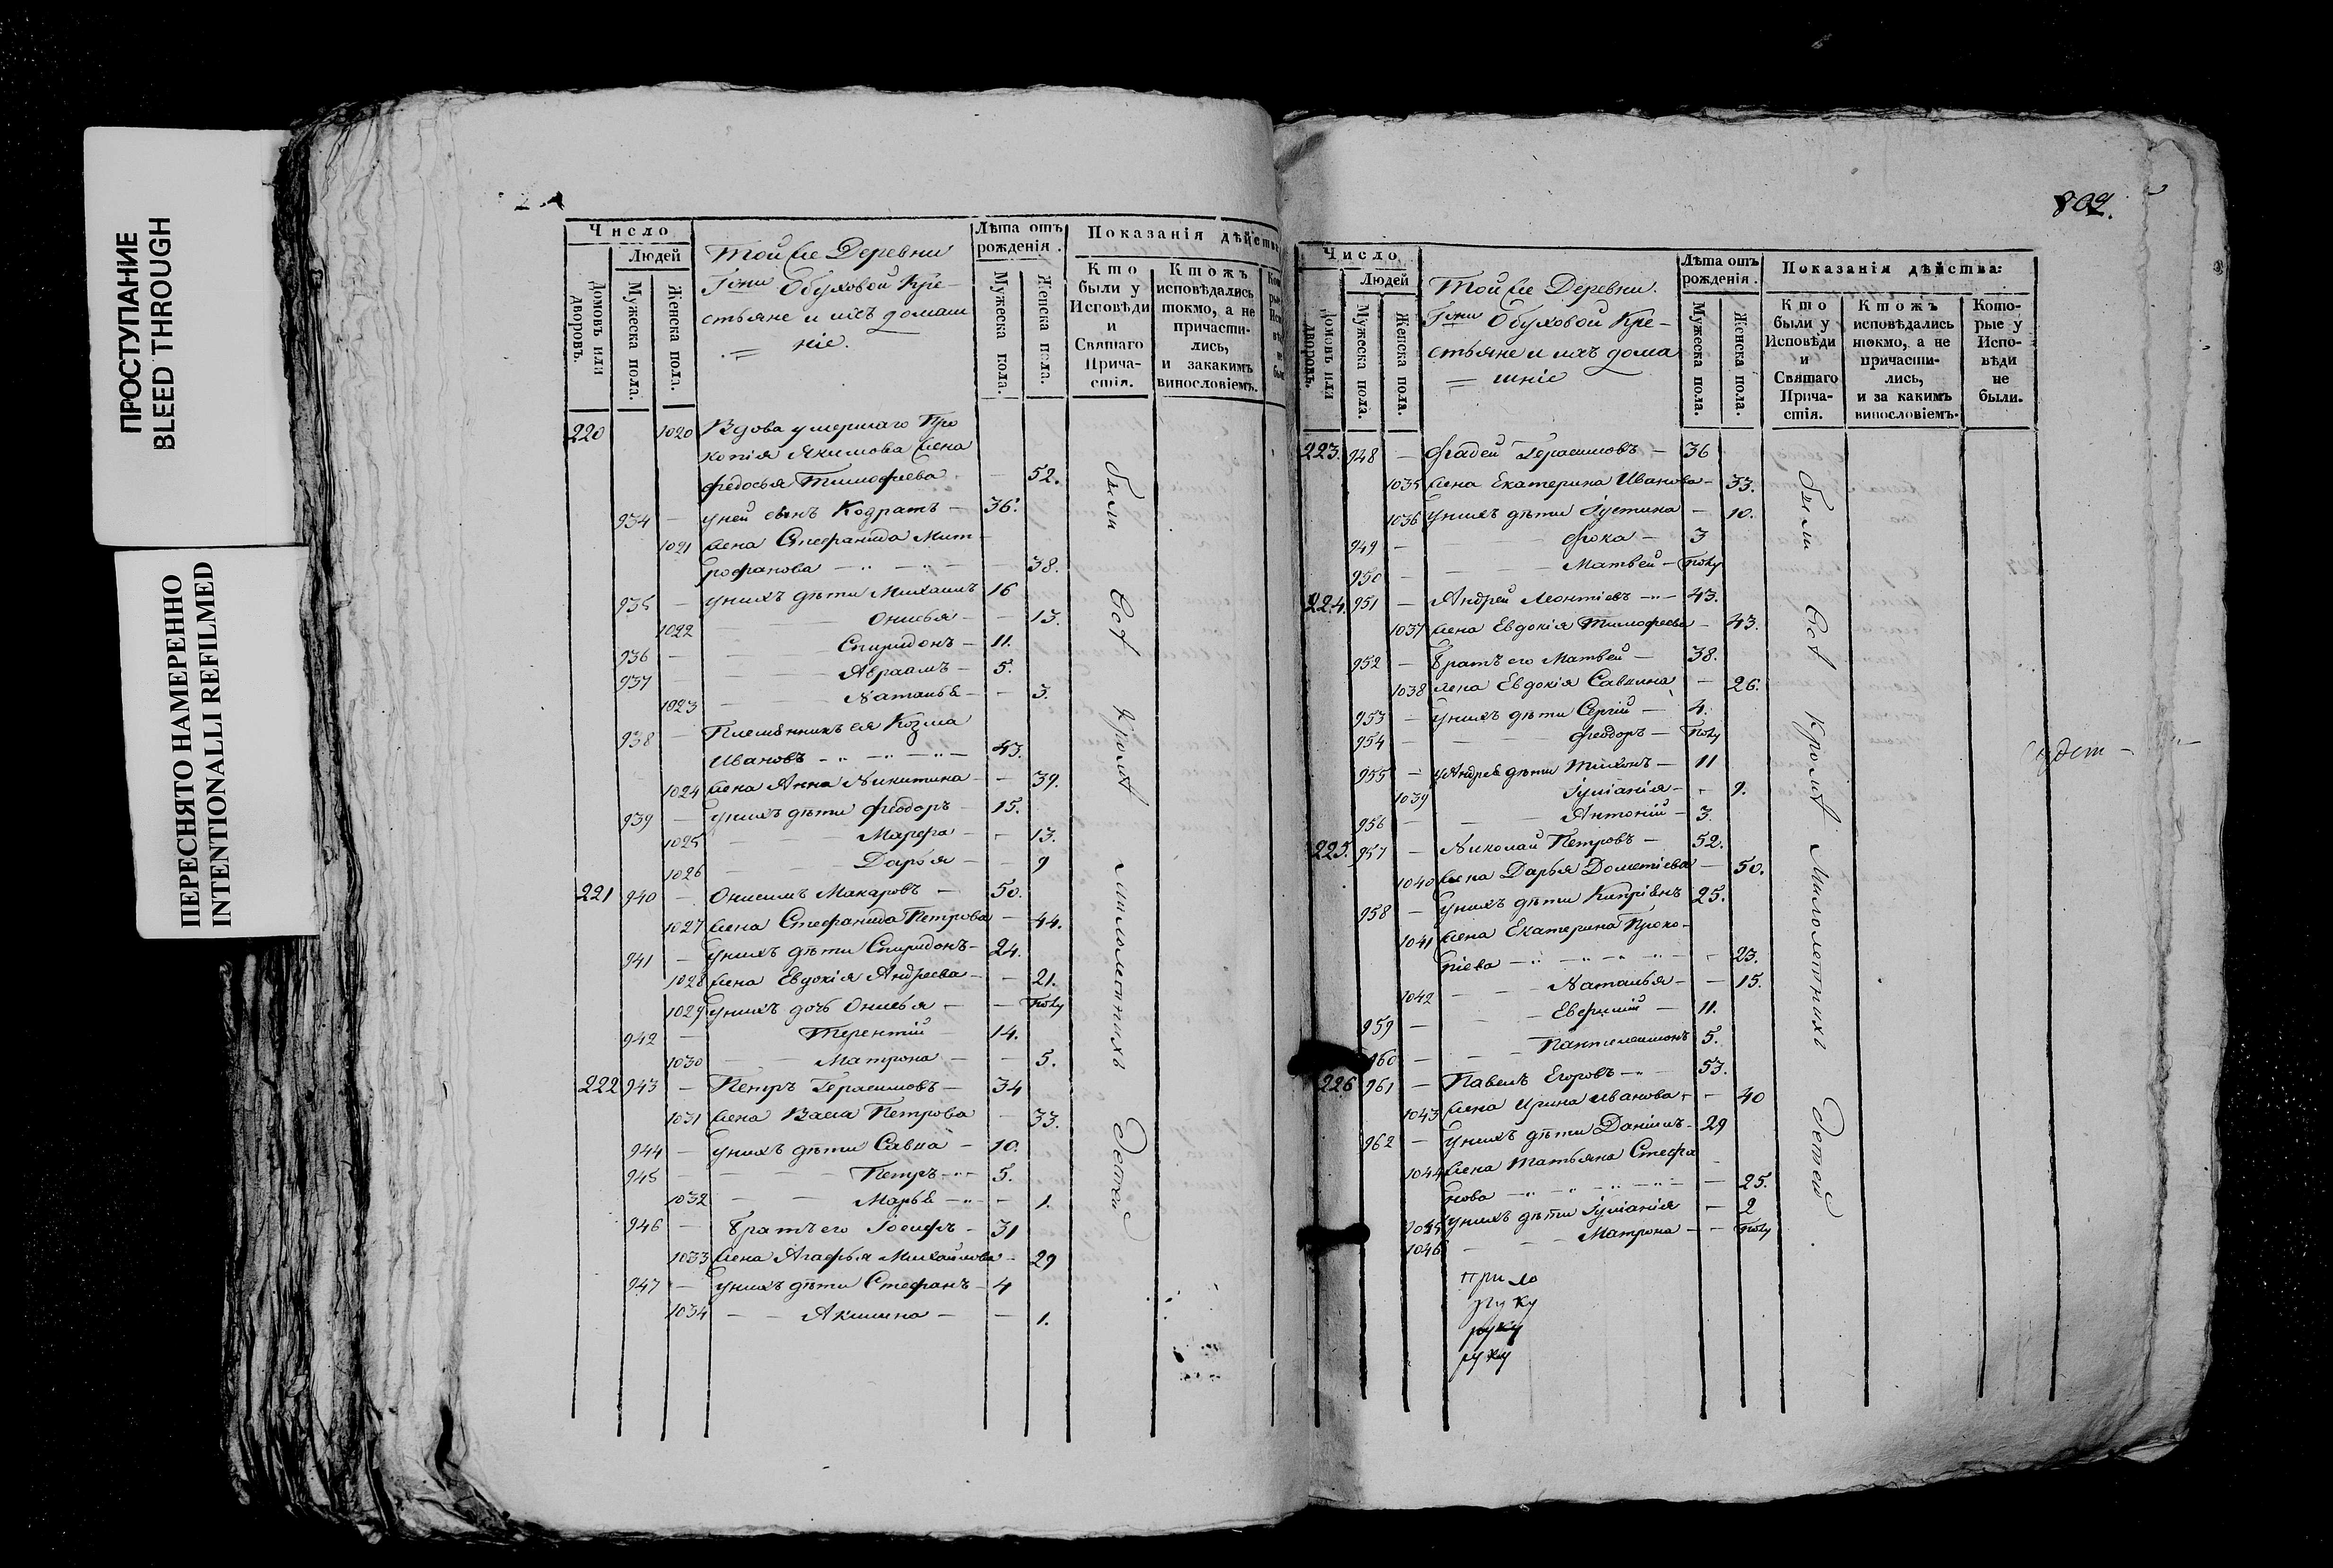 ПРОСТУПАНИЕ
BLEED THROUGH
ПЕРЕСНЯТО НАМЕРЕННО
INTENTIONALLI REFILMED
Число
Людей
Домовъ или дворовъ.
Мужеска пола.
Женска пола.
Той же Деревни
Гжи Обуховой Кре-
стьяне и ихъ домаш
ніе.
Лѣта отъ рожденія.
Мужеска пола.
Женска пола.
Показанія дѣйства
Кто были у Исповѣди и Святаго Прича-стія.
Ктожъ исповѣдались токмо, а не причасти-лись, и закакимъ винословіемъ.
220 1020 Вдова умершаго Про
копія Якимова жена
Федосья Тимофеева 52.
934 — у ней сынъ Кодратъ — 36.
1021 жена Стефанида Мит
рофанова 38.
935 — у нихъ дѣти Михаилъ 16
1022 Онисья — 13.
936 — Спиридонъ — 11.
937 Авраамъ — 5.
1023 Наталья — 3.
938 — Племянникъ ея Козма
Ивановъ 43.
1024 жена Анна Никитина — 39.
939 — у нихъ дѣти Феодоръ 15.
1025 Марфа — 13.
1026 Дарья — 9
221 940 — Онисимъ Макаровъ — 50.
1027 жена Стефанида Петрова — 44.
941 — у нихъ дѣти Спиридонъ — 24.
1028 жена Евдокія Андреева — 21.
1029 у нихъ дочь Онисья — полу
942 — Терентій 14.
1030 — Матрона — 5.
222 943 — Петръ Герасимовъ — 34
1031 жена Васса Петрова — 33.
944 — у нихъ дѣти Савва — 10.
945 — Петръ 5.
1032 — Марья — 1.
946 — Братъ его Іосифъ — 31
1033 жена Агафья Михайлова — 29
947 — у нихъ дѣти Стефанъ — 4
1034 — Акилина — 1.
были всѣ кромѣ малолетнихъ детей
802.
Число
Людей
Домовъ или дворовъ.
Мужеска пола.
Женска пола.
Той же Деревни.
Гжи Обуховой Кре-
стьяне и ихъ дома
шніе
Лѣта отъ рожденія.
Мужеска пола.
Женска пола.
Показанія дѣйства:
Кто были у Исповѣди и Святаго Прича-стія.
Ктожъ исповѣдались токмо, а не причасти-лись, и за какимъ винословіемъ.
Кото-рые у Испо-вѣди не были.
223. 948 — Фадей Герасимовъ — 36
1035 жена Екатерина Иванова — 33.
1036 у нихъ дѣти Іустина — 10.
949 — Фока — 3
950 — Матвей — полу
224. 951 — Андрей Леонтіевъ 43.
1037 жена Евдокія Тимофеева — 43.
952 — Братъ его Матвей — 38.
1038 жена Евдокія Саввина — 26.
953 — у нихъ дѣти Сергій — 4.
954 — Феодоръ — полу
955 — у Андрея дѣти Тихонъ — 11
1039 Іуліанія — 9.
956 — Антоній — 3.
225. 957 — Николай Петровъ — 52.
1040 жена Дарья Дометіева — 50.
958 — у нихъ дѣти Кипріянъ 25.
1041 жена Екатерина Проко-
піева 23.
1042 — Наталья — 15.
959 — Евфимій — 11.
960 — Пантелеимонъ 5.
226 961 — Павелъ Егоровъ 53.
1043 жена Ирина Иванова — 40
962 — у нихъ дѣти Даніилъ — 29
1044 жена Татьяна Стефа
нова 25.
1045 у нихъ дѣти Іуліанія — 2
1046 — Матрона — полу
были всѣ кромѣ малолетнихъ детей
прило
руку
руку
руку